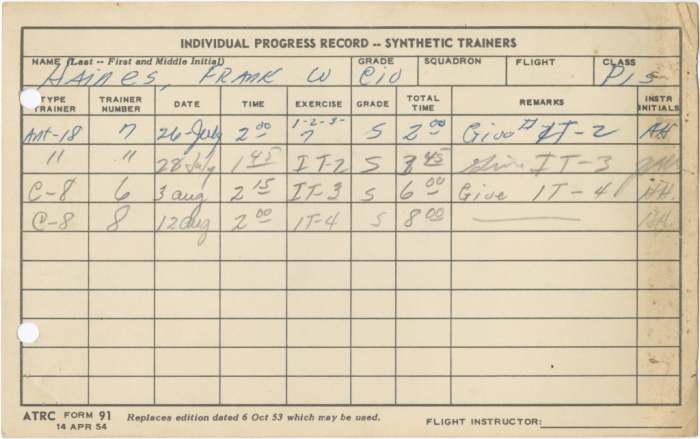 INDIVIDUAL PROGRESS RECORD -- SYNTHETIC TRAINERS
NAME (Last -- First and Middle Initial) GRADE SQUADRON FLIGHT CLASS
HAINES, FRANK W Civ P1s
TYPE TRAINER TRAINER NUMBER DATE TIME EXERCISE GRADE TOTAL TIME REMARKS INSTR INITIALS
ANT-18 7 26-July 2 00 1-2-3-7 S 2 00 Give # IT-2 AH
" " 28 July 1 45 IT-2 S 3 45 Give IT-3
C-8 6 3 aug 2 15 IT-3 S 6 00 Give IT-4 AH.
C-8 8 12 aug 2 00 IT-4 S 8 00 AH.
ATRC FORM 91 Replaces edition dated 6 Oct 53 which may be used. FLIGHT INSTRUCTOR:
14 APR 54